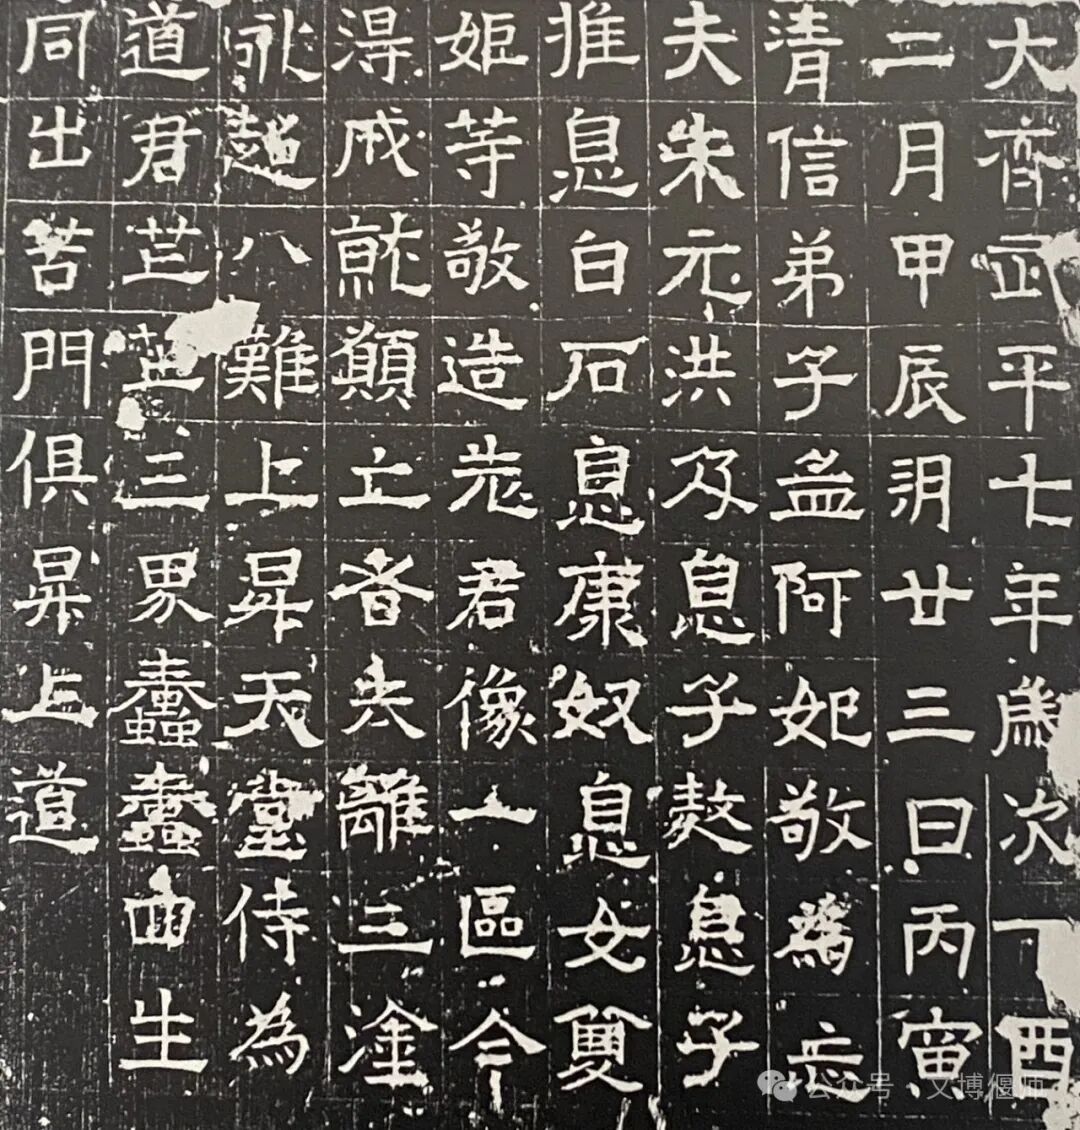 大齊武平七年歲次丁酉
二月甲辰朔廿三日丙寅
清信弟子孟阿妃敬為亡
夫朱元洪及息子敖息子
推息白石息康奴息女雙
姬等敬造老君像一區今
得成就願亡者去離三塗
永超八難上昇天堂侍為
道君芒芒三界蠢蠢四生
同出苦門俱昇上道
公众号·文博偃师